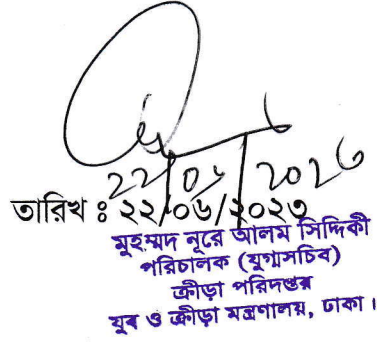 তারিখ ঃ ২২/০৬/২০২৩
মুহম্মদ নূরে আলম সিদ্দিকী
পরিচালক (যুগ্মসচিব)
ক্রীড়া পরিদপ্তর
যুব ও ক্রীড়া মন্ত্রণালয়, ঢাকা।